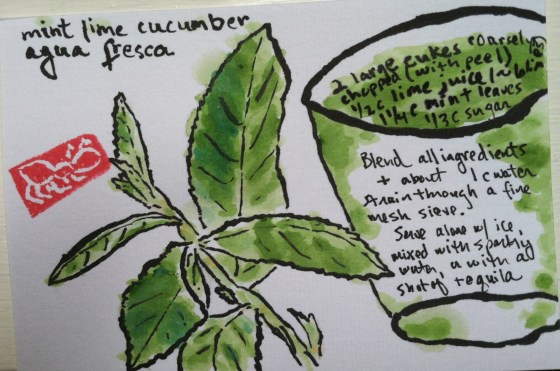 mint lime cucumber
agua fresca
2 large cukes coarsely
chopped (with peel)
1/2 c lime juice (~
1 1/4 c mint leaves
1/3 c sugar
Blend all ingredients
+ about 1 c water
through a fine
mesh sieve.
Serve alone w/ ice,
mixed with sparkly
water, or with a
shot of tequila